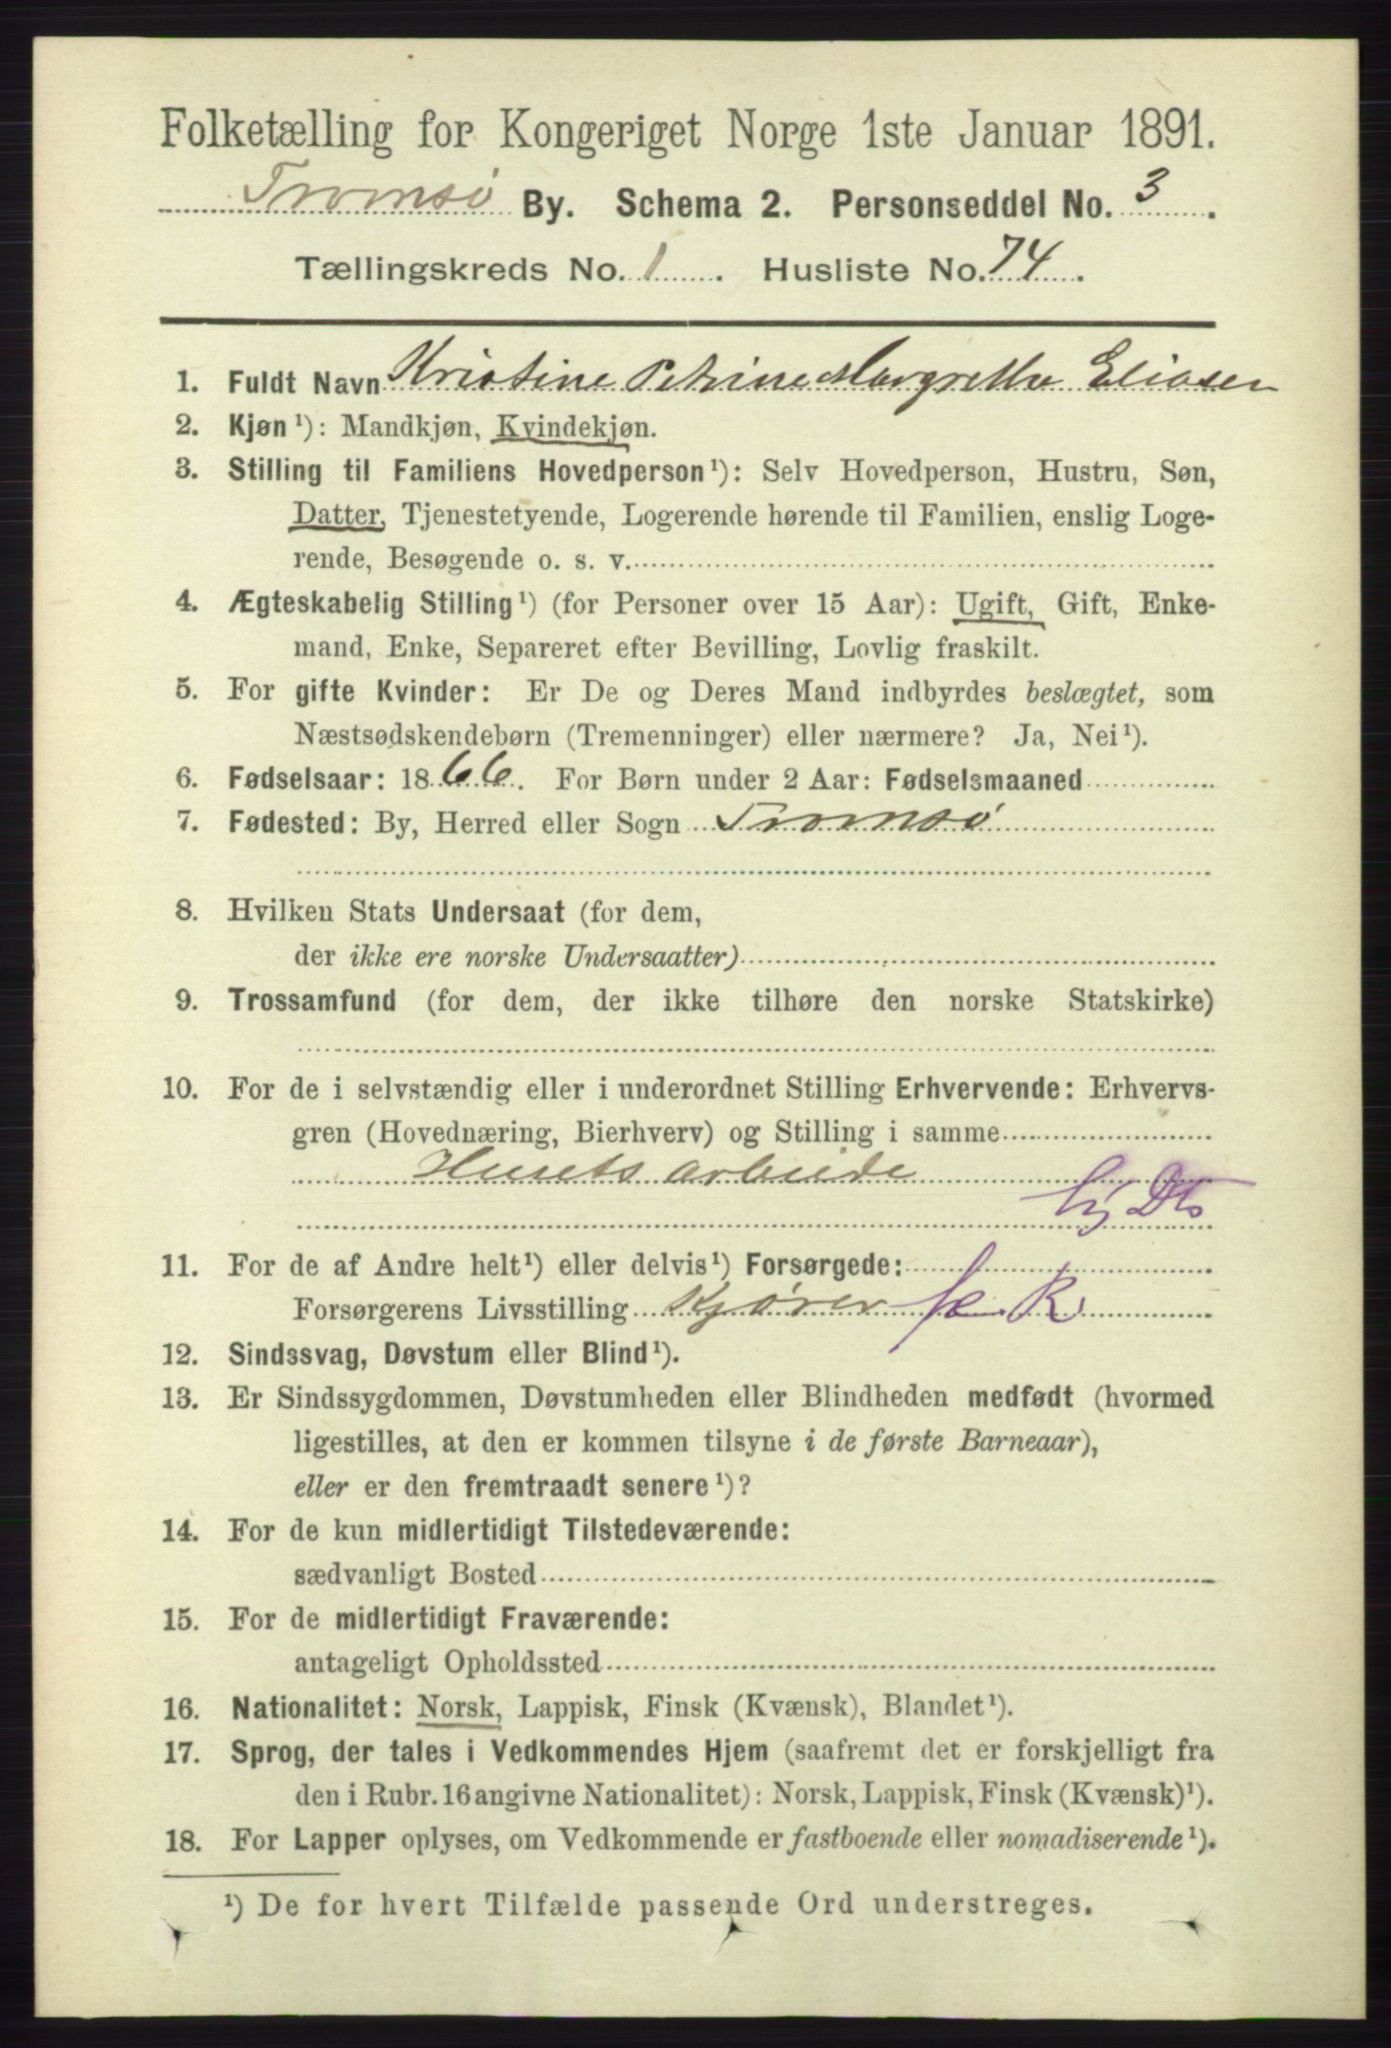 Folketælling for Kongeriget Norge 1ste Januar 1891.
Tromsø By. Schema 2. Personseddel No. 3.
Tællingskreds No. 1. Husliste No. 74.
1. Fuldt Navn Kristine Petrine Margrethe Eliasen
2. Kjøn¹): Mandkjøn, Kvindekjøn.
3. Stilling til Familiens Hovedperson¹): Selv Hovedperson, Hustru, Søn,
Datter, Tjenestetyende, Logerende hørende til Familien, enslig Loge-
rende, Besøgende o. s. v.
4. Ægteskabelig Stilling¹) (for Personer over 15 Aar): Ugift, Gift, Enke-
mand, Enke, Separeret efter Bevilling, Lovlig fraskilt.
5. For gifte Kvinder: Er De og Deres Mand indbyrdes beslægtet, som
Næstsødskendebørn (Tremenninger) eller nærmere? Ja, Nei¹).
6. Fødselsaar: 1866. For Børn under 2 Aar: Fødselsmaaned
7. Fødested: By, Herred eller Sogn Tromsø
8. Hvilken Stats Undersaat (for dem,
der ikke ere norske Undersaatter)
9. Trossamfund (for dem, der ikke tilhøre den norske Statskirke)
10. For de i selvstændig eller i underordnet Stilling Erhvervende: Erhvervs-
gren (Hovednæring, Bierhverv) og Stilling i samme
Husets arbeide
11. For de af Andre helt¹) eller delvis¹) Forsørgede:
Forsørgerens Livsstilling Kjører
12. Sindssvag, Døvstum eller Blind¹).
13. Er Sindssygdommen, Døvstumheden eller Blindheden medfødt (hvormed
ligestilles, at den er kommen tilsyne i de første Barneaar),
eller er den fremtraadt senere¹)?
14. For de kun midlertidigt Tilstedeværende:
sædvanligt Bosted
15. For de midlertidigt Fraværende:
antageligt Opholdssted
16. Nationalitet: Norsk, Lappisk, Finsk (Kvænsk), Blandet¹).
17. Sprog, der tales i Vedkommendes Hjem (saafremt det er forskjelligt fra
den i Rubr. 16 angivne Nationalitet): Norsk, Lappisk, Finsk (Kvænsk)¹).
18. For Lapper oplyses, om Vedkommende er fastboende eller nomadiserende¹).
¹) De for hvert Tilfælde passende Ord understreges.